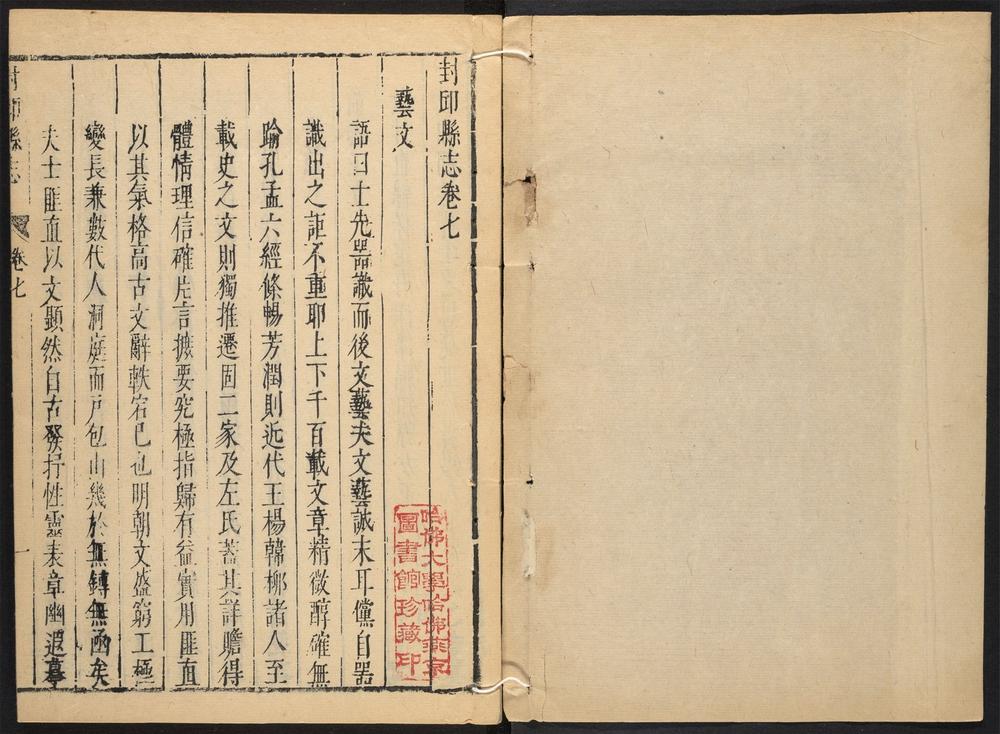 封邱縣志卷七
藝文
語曰士先器識而後文藝夫文藝誠末耳儻自器
識出之詎不重耶上下千百載文章精微醇確無
踰孔孟六經條暢芳潤則近代王楊韓柳諸人至
載史之文則獨推遷固二家及左氏蓋其詳贍得
體情理信確片言摭要究極指歸有益實用匪直
以其氣格高古文辭軼宕已也明朝文盛窮工極
變長兼數代人洞庭而戸包山幾於無鏄無函矣
夫士匪直以文顯然自古發抒性靈表章幽遐摹
封邱縣志
卷七
一
哈佛大學哈佛燕京
圖書館珍藏印